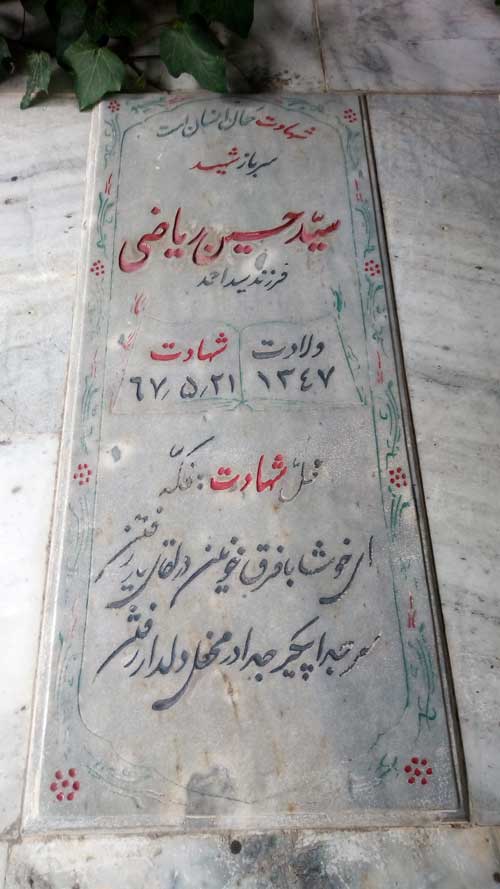 شهادت کمال انسان است
سرباز شهید
سیّد حسین ریاضی
فرزند سید احمد
ولادت شهادت
۱۳۴۷ ۶۷٫۵٫۲۱
محل شهادت : فکّه
ای خوشا با فرق خونین در لقای یار رفتن
سر جدا پیکر جدا در محفل دلدار رفتن